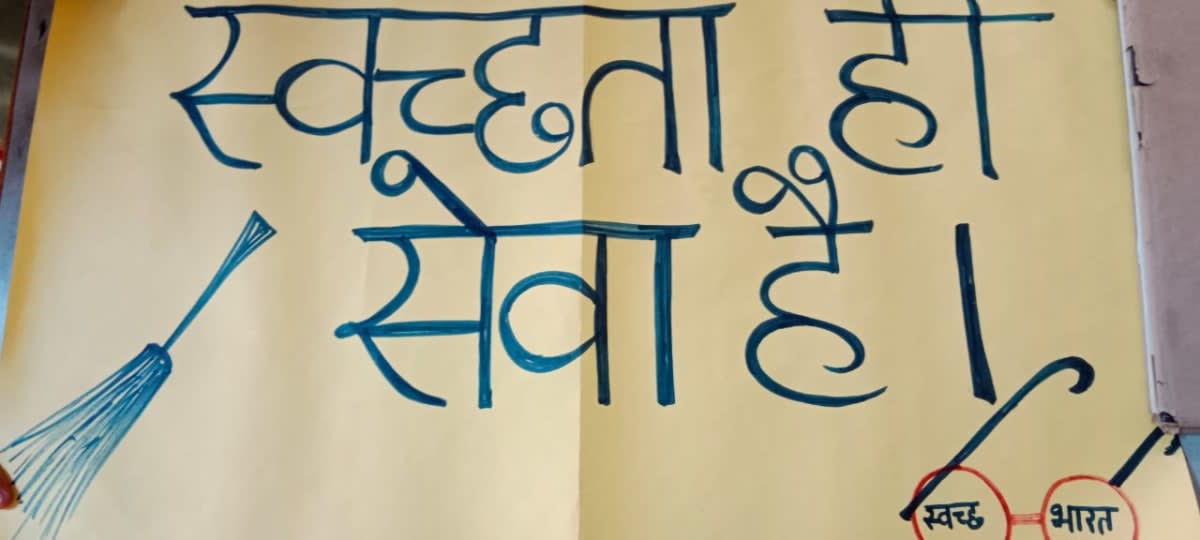 स्वच्छता ही
सेवा है।
स्वच्छ भारत